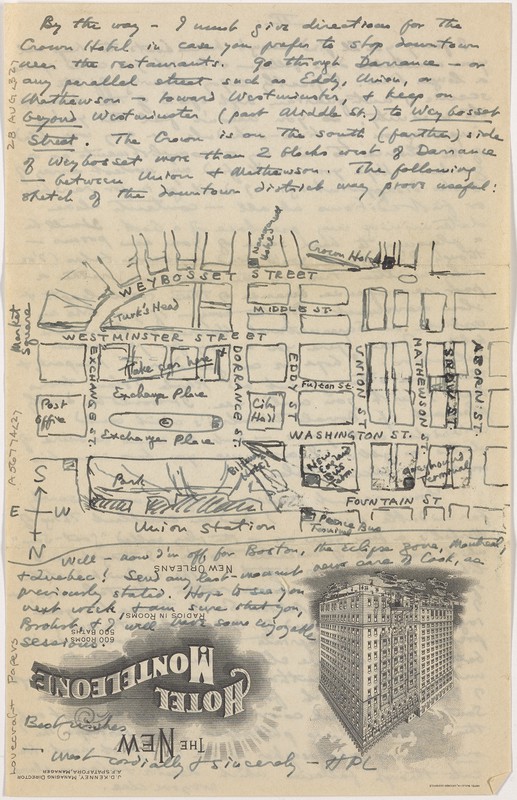 By the way - I must give directions for the
Crown Hotel in case you prefer to stop downtown
near the restaurants. Go through Dorrance - or
any parallel street such as Eddy, Union, or
Mathewson - toward Westminster, & keep on
beyond Westminster (past Middle St.) to Weybosset
Street. The Crown is on the south (farther) side
of Weybosset more than 2 blocks west of Dorrance
- between Union & Mathewson. The following
sketch of the downtown district may prove useful:
Narragansett Hotel
Crown Hotel
WEYBOSSET STREET
Turk's Head
MIDDLE ST.
Market Square
WESTMINSTER STREET
EXCHANGE ST.
Take car here
DORRANCE ST.
EDDY ST.
Fulton St.
UNION ST.
MATHEWSON ST.
SNOW ST.
ABORN ST.
Exchange Place
Post Office
City Hall
Exchange Place
WASHINGTON ST.
Park
Biltmore Hotel
New England Bus Term.
Greyhound Terminal
FOUNTAIN ST
Union Station
Terminal Bus
S
E W
N
Well - now I'm off for Boston, the eclipse zone, Montreal,
& Quebec! Send any last-moment news care of Cook, as
previously stated. Hope to see you
next week, & am sure that you,
Brobst, & I will have some enjoyable
sessions.
Best wishes
- most cordially & sincerely - HPL
THE NEW
HOTEL
MONTELEONE
600 ROOMS
500 BATHS
RADIOS IN ROOMS
NEW ORLEANS
J.D. KENNEY, MANAGING DIRECTOR
A.F. SPATAFORA, MANAGER
Lovecraft Papers